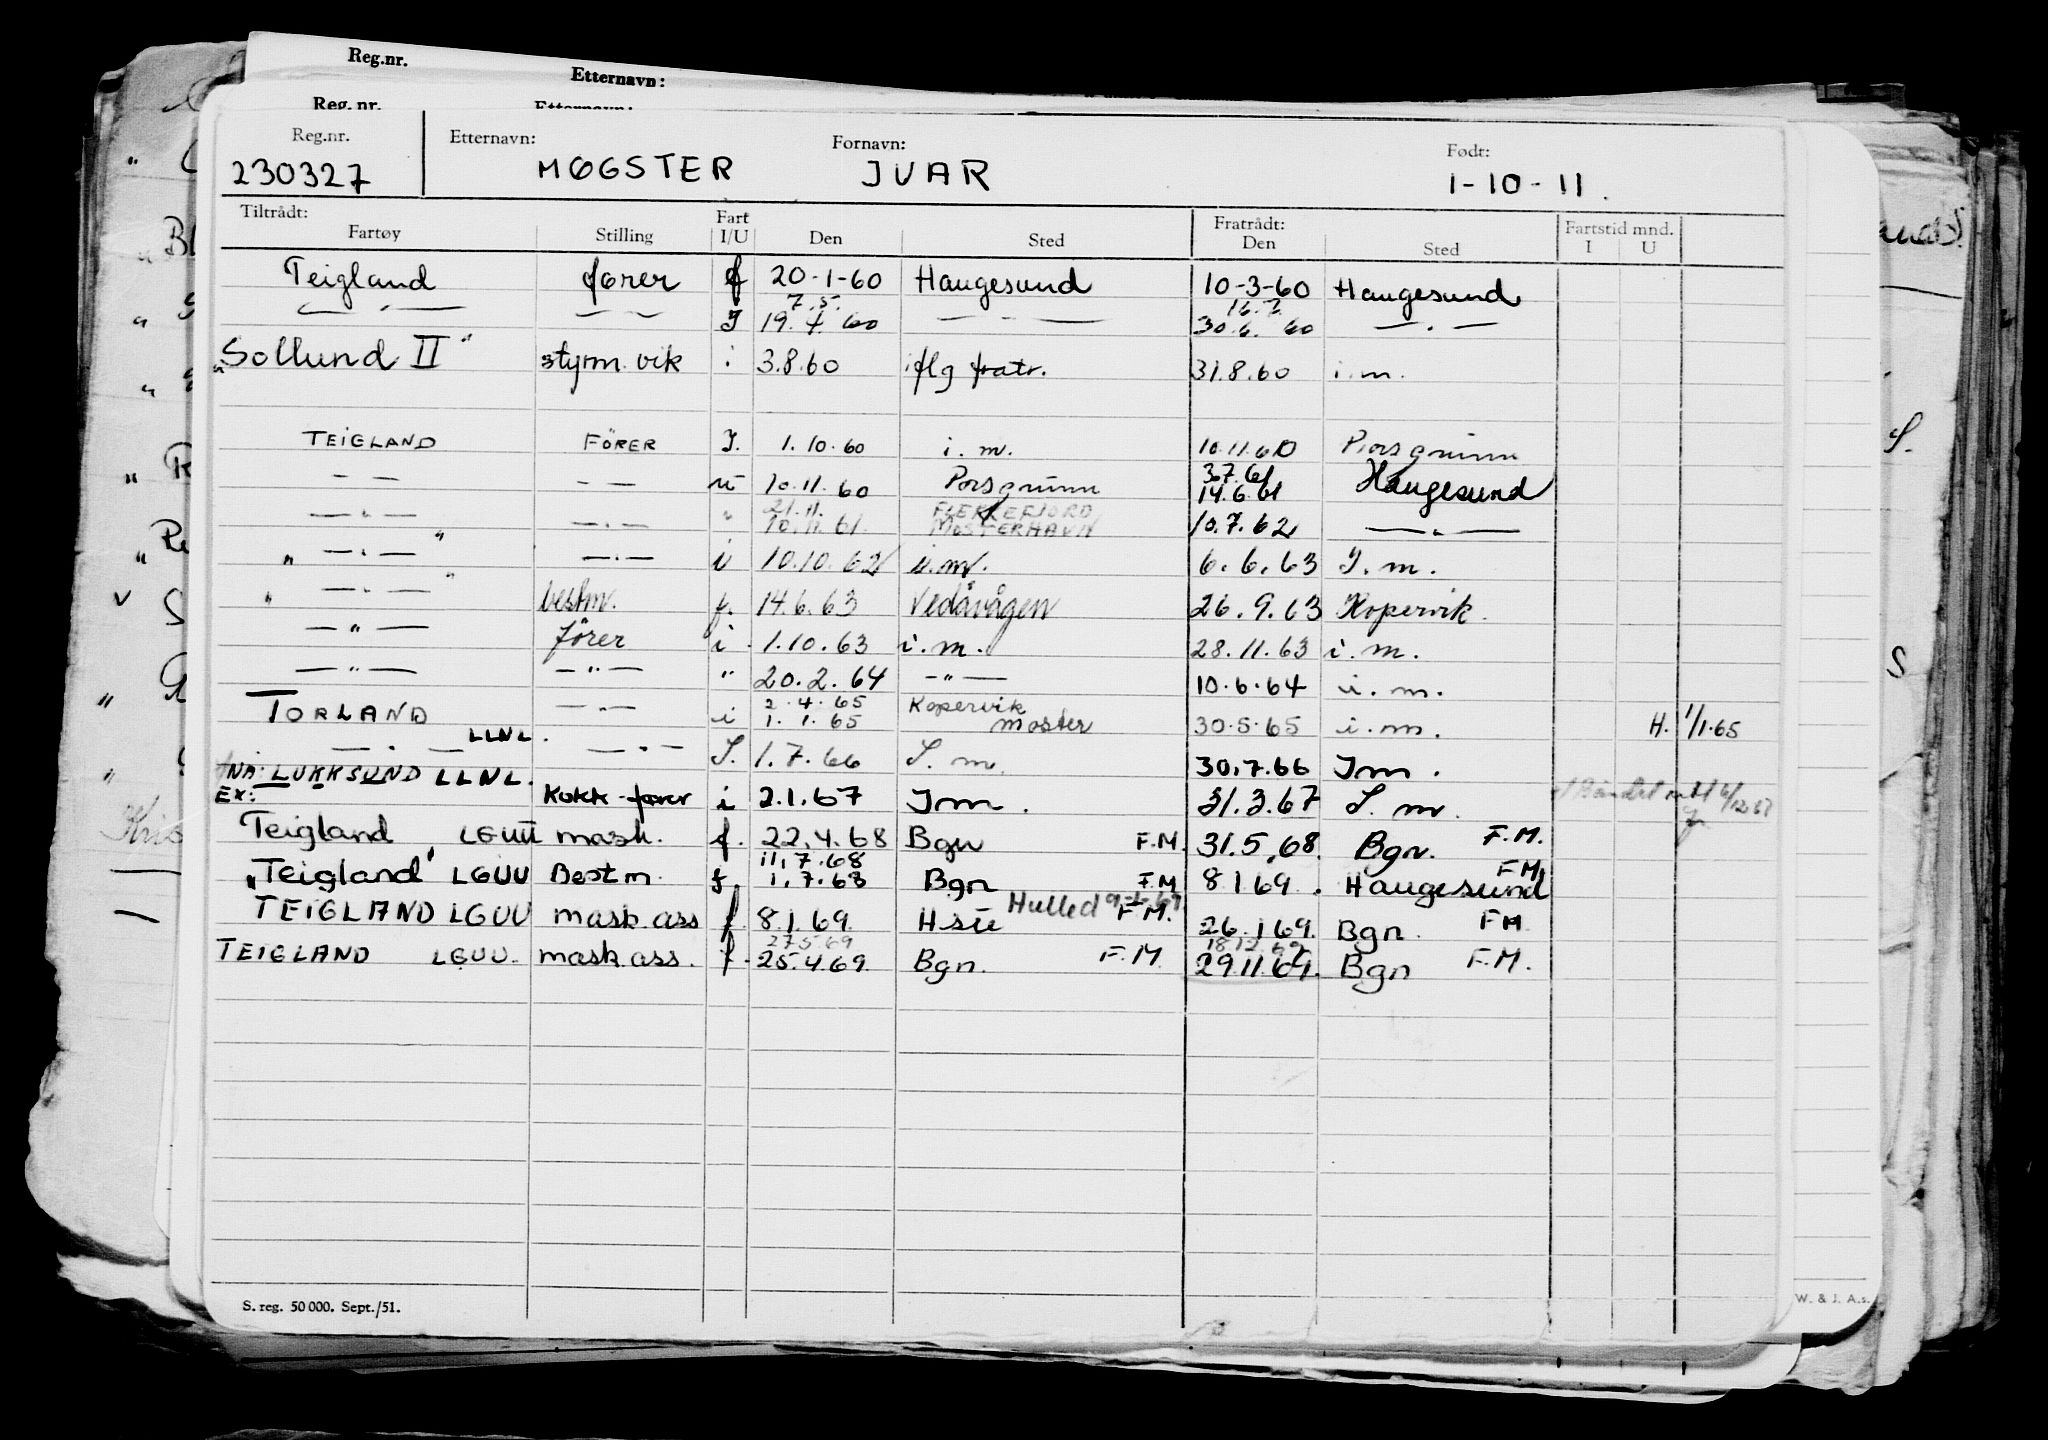 Reg.nr. Etternavn:
Reg. nr. Etternavn:
Reg.nr. Etternavn: Fornavn: Født:
230327 MØGSTER IVAR 1-10-11.
Tiltrådt: Fart Fratrådt: Fartstid mnd.
Fartøy Stilling I/U Den Sted Den Sted I U
Teigland fører f 20-1-60 Haugesund 10-3-60 Haugesund
7.5. 16.7.
— " — — — I 19.4.60 — - — 30.6. 60 — . —
"Sollund II" styrm. vik i 3.8.60 iflg fratr. 31.8.60 i.m.
TEIGLAND FÖRER I. 1.10.60 i.m. 10.11.60 Porsgrunn
3.7.61
— — — — u 10.11.60 Porsgrunn 14.6.61 Haugesund
21.11. FLEKKEFJORD
— " — — " — " 10.11.61. MOSTERHAVN 10.7.62 — " —
" — " — " — " — i 10.10.62 i.m. 6.6.63 I.m.
" — " — " bestm. f. 14.6.63 Vedåvågen 26.9.63 Kopervik.
— " — förer i. 1.10.63 i.m. 28.11.63 i.m.
— " — — " — " 20.2.64 — " — 10.6.64 i.m.
2.4.65 Kopervik
TORLAND — " — i 1.1.65 Moster 30.5.65 i.m. H. 1/1.65
LLNL.
— " — — " — I. 1.7.66 I.m. 30.7.66 Im.
NÅ: LUKKSUND LLNL.
EX: Kokk-fører i 2.1.67 Im. 31.3.67 I.m.
Teigland LGUU mask. f. 22.4.68 Bgn F.M. 31.5.68. Bgn. F.M.
11.7.68 F.M.
"Teigland" LGUU Bestm. f 1.7.68 Bgn F.M 8.1.69. Haugesund
Hulled
TEIGLAND LGUU mask.ass f. 8.1.69. Hsu F.M. 26.1.69. Bgn. FM
27.5.69 18.12.69
TEIGLAND LGUU. mask.ass. f. 25.4.69. Bgn. F.M. 29.11.69. Bgn F.M.
S. reg. 50 000. Sept./51.
W. & J. A.s.